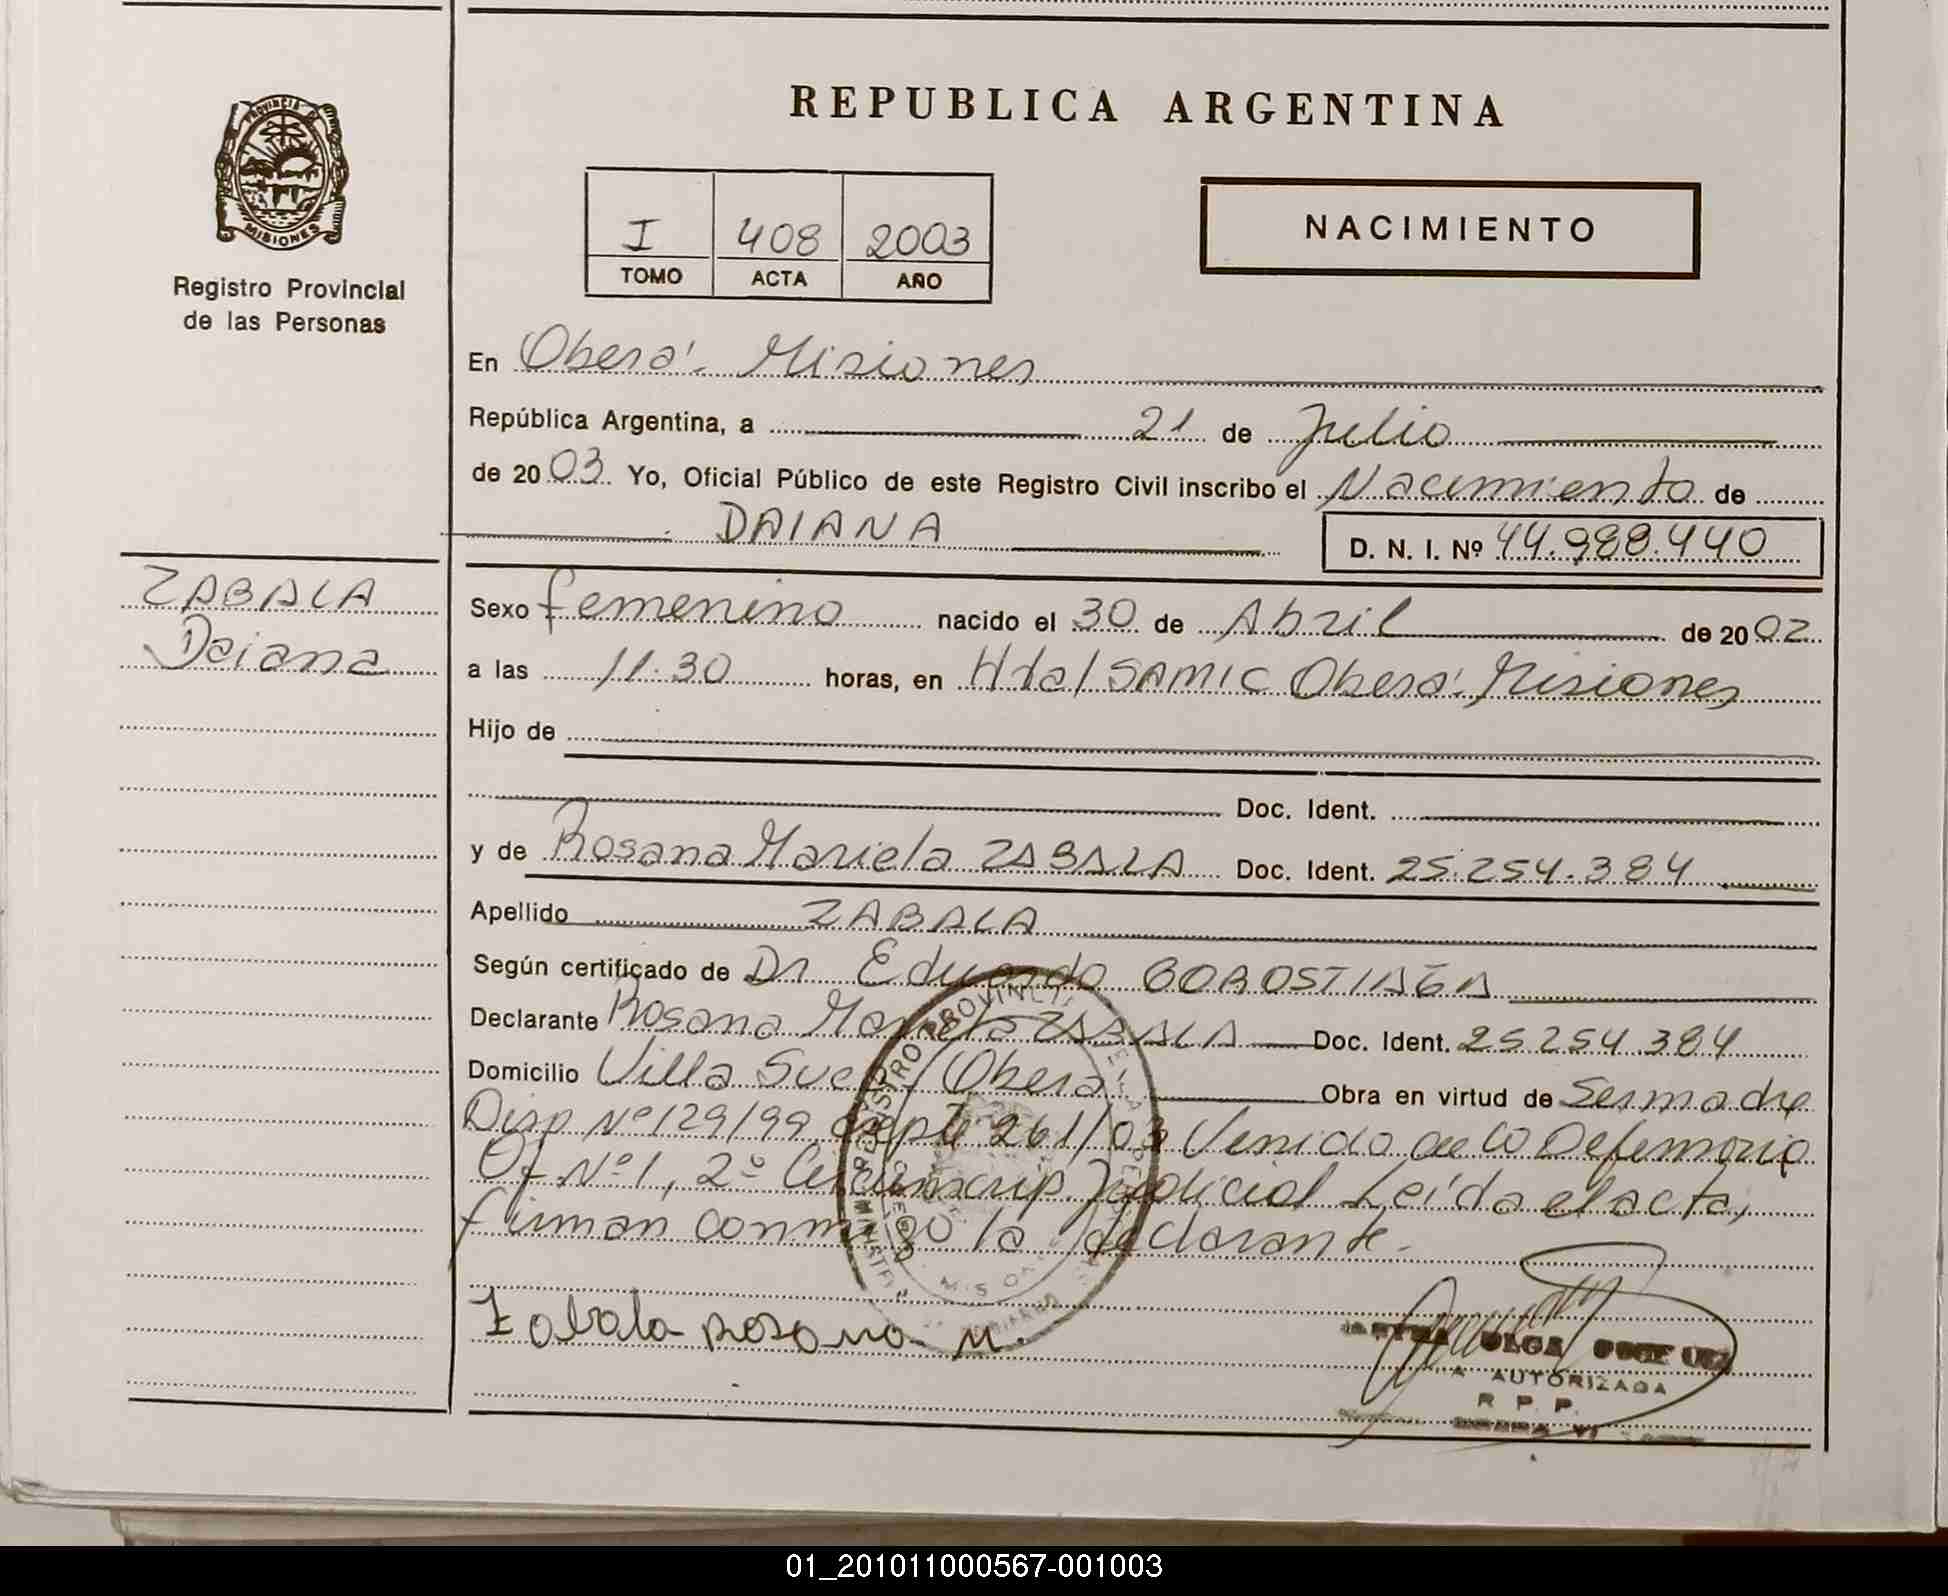 REPUBLICA ARGENTINA
PROVINCIA DE
MISIONES
Registro Provincial
de las Personas
I 408 2003
TOMO ACTA AÑO
NACIMIENTO
En Oberá. Misiones
República Argentina, a 21 de Julio
de 2003 Yo, Oficial Público de este Registro Civil inscribo el Nacimiento de
DAIANA D. N. I. Nº 44.988.440
ZABALA
Daiana
Sexo femenino nacido el 30 de Abril de 2002
a las 11.30 horas, en Htal SAMIC Oberá. Misiones
Hijo de
Doc. Ident.
y de Rosana Mariela ZABALA Doc. Ident. 25.254.384
Apellido ZABALA
Según certificado de Dr Eduardo GOROSTIAGA
Declarante Rosana Mariela ZABALA Doc. Ident. 25254384
Domicilio Villa / Oberá Obra en virtud de Ser madre
Disp Nº 129/99 Expte 261/03 Venido de la Defensoria
Of Nº 1, 2º Circunscrip. Judicial Leída el acta,
firman conmigo la declarante.
REGISTRO PROVINCIAL DE LAS PERSONAS
Zabala rosana M.
OLGA
AUTORIZADA
R P P
01_201011000567-001003